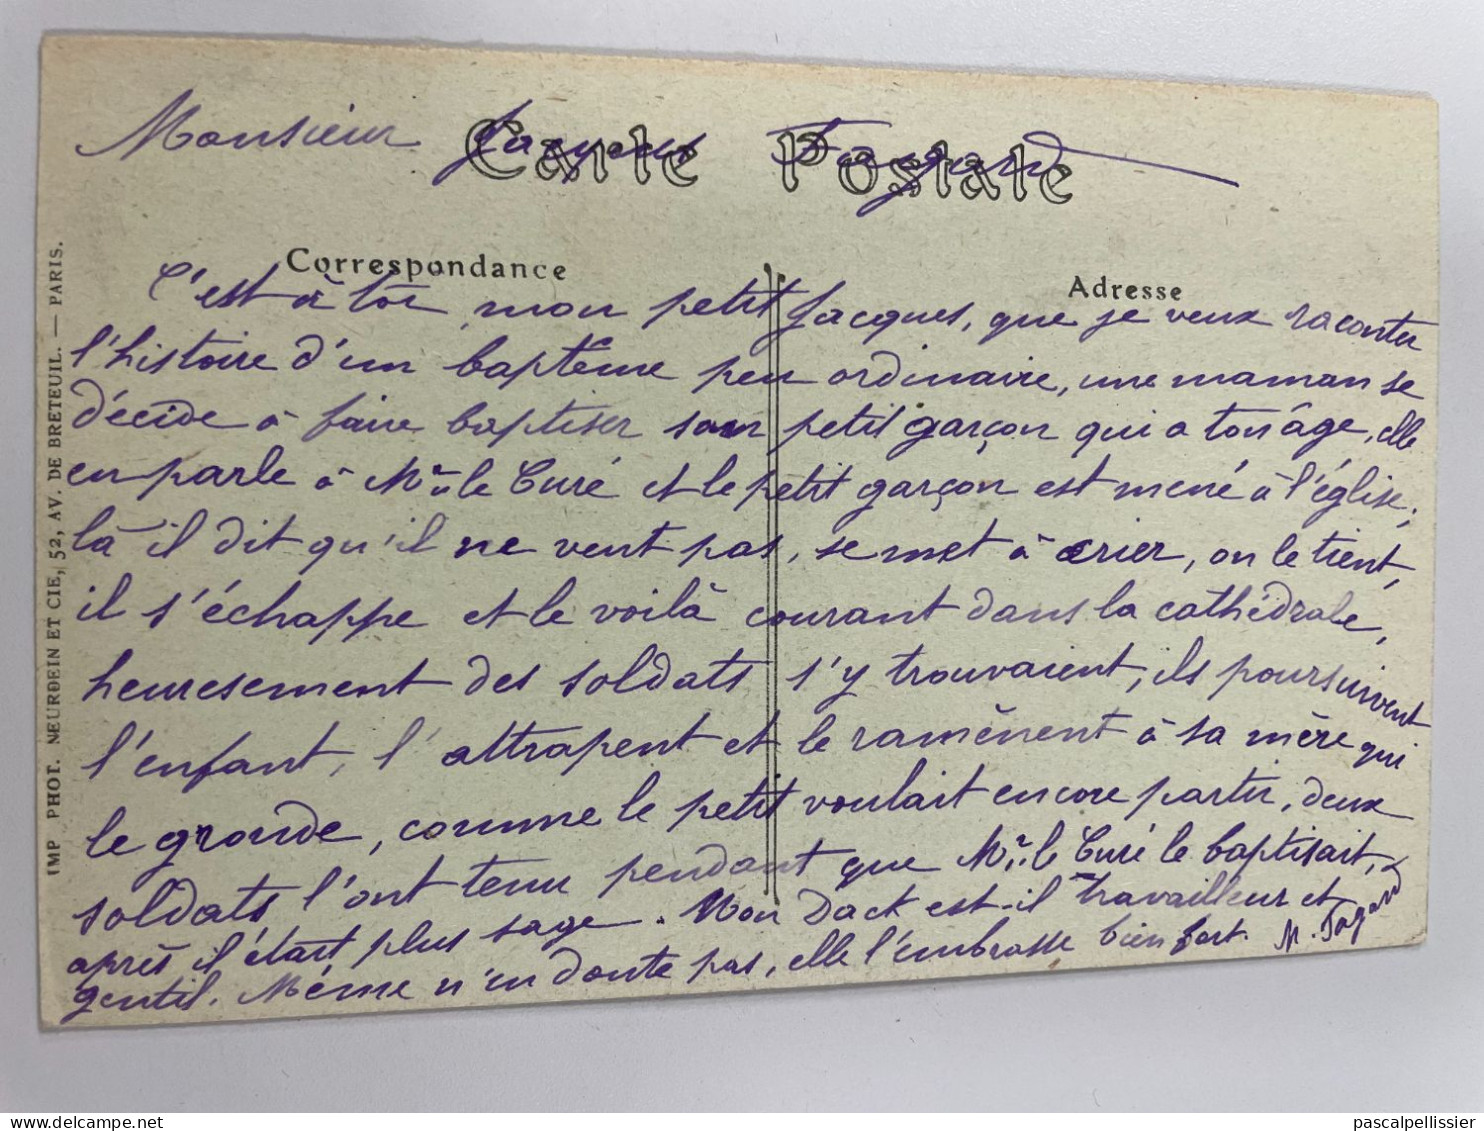 Carte Postale
Monsieur Jacques Fagard
Correspondance
Adresse
C'est à toi, mon petit Jacques, que je veux raconter
l'histoire d'un baptême peu ordinaire, une maman se
décide à faire baptiser son petit garçon qui a ton âge, elle
en parle à Mr le Curé et le petit garçon est mené à l'église,
là il dit qu'il ne veut pas, se met à crier, on le tient,
il s'échappe et le voilà courant dans la cathédrale,
heuresement des soldats s'y trouvaient, ils poursuivent
l'enfant, l'attrapent et le ramènent à sa mère qui
le gronde, comme le petit voulait encore partir, deux
soldats l'ont tenu pendant que Mr le Curé le baptisait,
après il était plus sage. Mon Jack est-il travailleur et
gentil. Mémé n'en doute pas, elle l'embrasse bien fort. M. Fagard
IMP PHOT. NEURDEIN ET CIE, 52, AV. DE BRETEUIL. — PARIS.
pascalpellissier